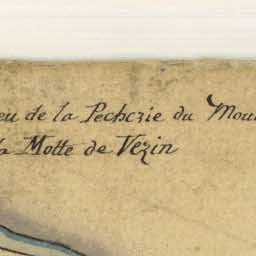 eu de la Pechezie du Mou
la Motte de Vezin